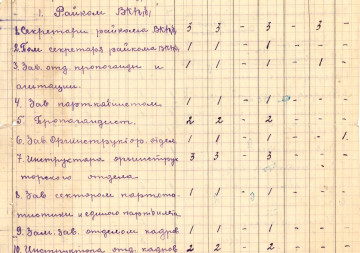 1. Райком ВКП(б)
1. Секретари райкома ВКП(б) 3 3 - 3 - 3 -
2. Пом. секретаря райкома ВКП(б) 1 1 - 1 - - -
3. Зав. отд. пропоганды и 1 1 - 1 - 1 -
агитации.
4. Зав парткабинетом 1 1 - 1 - - -
5 Пропагандист. 2 2 - 2 - - -
6. Зав. Оргинструктор. отдел 1 1 - 1 - - 1
7. Инструктора оргинструк 3 3 - 3 - - -
торского отдела
8. Зав сектором партста- 1 1 - 1 - - -
тистики и единого партбилета
9. Зам. Зав. отделом кадров 1 1 - 1 - - -
10. Инструктора отд. кадров 2 2 - 2 - - -